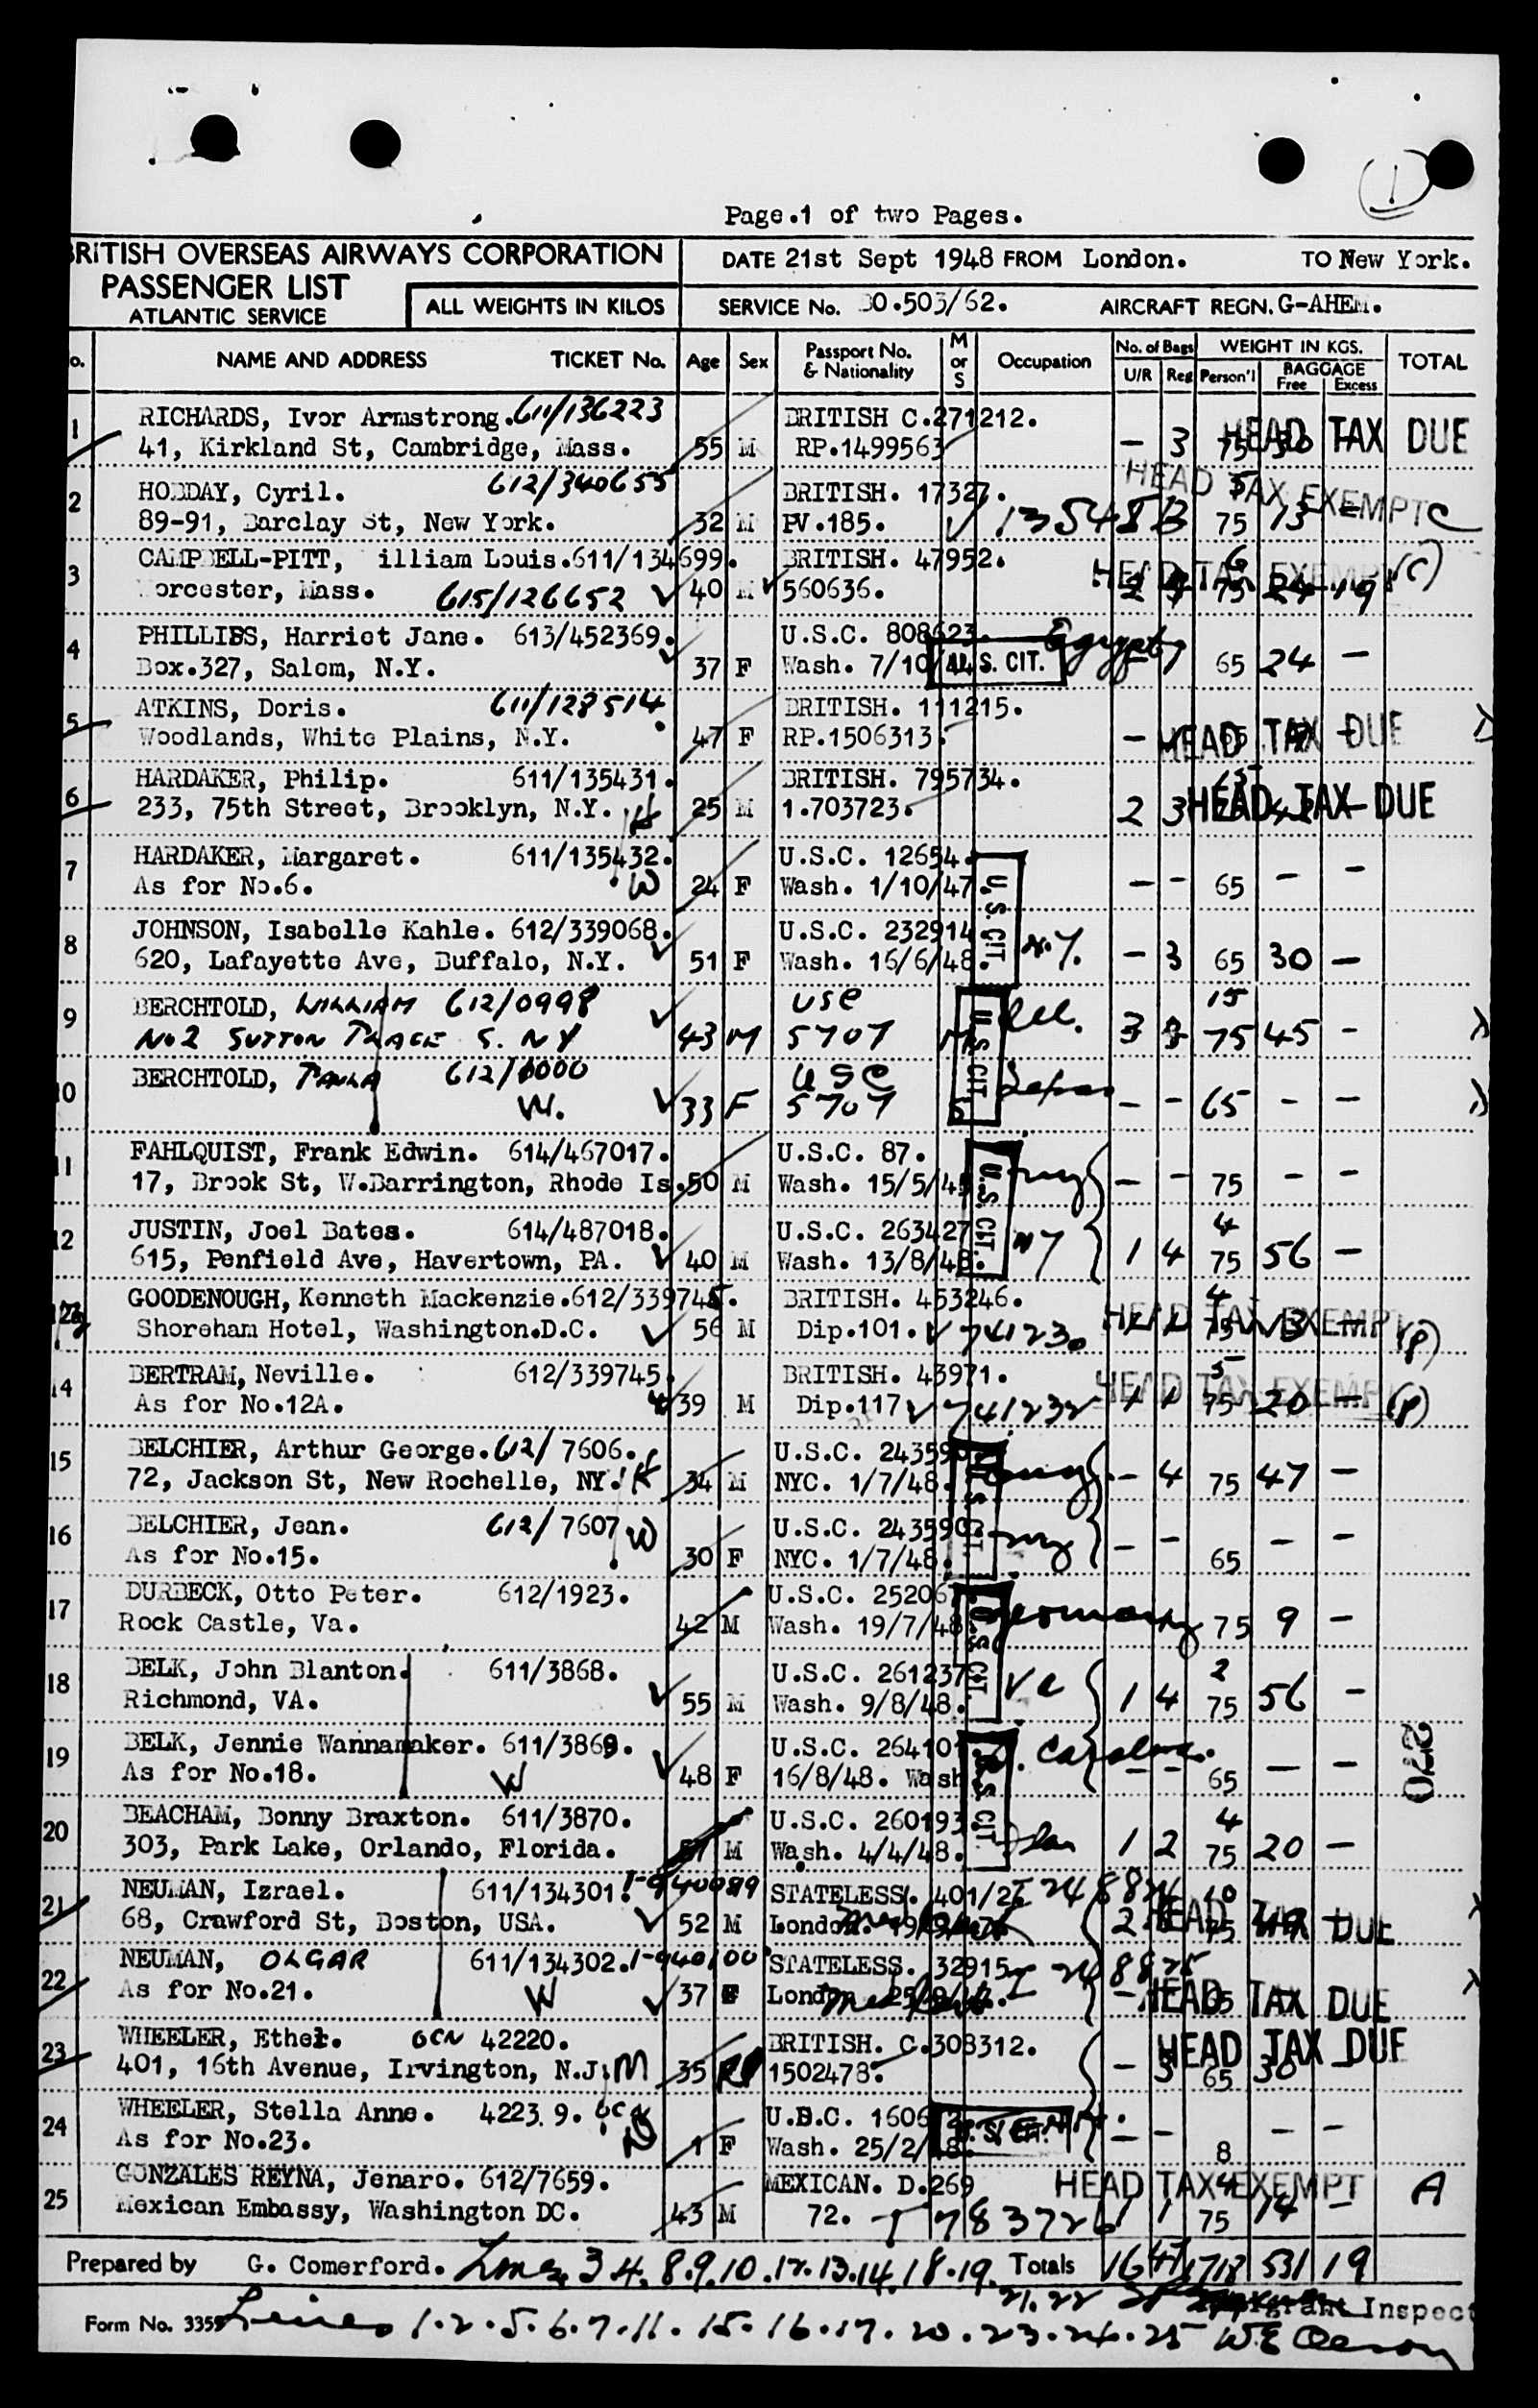 Page.1 of two Pages.
BRITISH OVERSEAS AIRWAYS CORPORATION
PASSENGER LIST
ATLANTIC SERVICE
ALL WEIGHTS IN KILOS
DATE 21st Sept 1948 FROM London. TO New York.
SERVICE No. BO.503/62. AIRCRAFT REGN. G-AHEM.
No. NAME AND ADDRESS TICKET No. Age Sex Passport No. & Nationality M or S Occupation No. of Bags U/R Reg WEIGHT IN KGS. Person'l BAGGAGE Free Excess TOTAL
1 RICHARDS, Ivor Armstrong. 611/136223 BRITISH C.271212.
41, Kirkland St, Cambridge, Mass. 55 M RP.1499563 – 3 75 30 HEAD TAX DUE
2 HOBDAY, Cyril. 612/340655 BRITISH. 17327. HEAD TAX EXEMPT
89-91, Barclay St, New York. 32 M PV.185. 75 13 –
3 CAMPBELL-PITT, illiam Louis. 611/134699. BRITISH. 47952. HEAD TAX EXEMPT (C)
Worcester, Mass. 615/126652 40 M 560636. 75 24 19
4 PHILLIBS, Harriet Jane. 613/452369. U.S.C. 808623. Egypt
Box.327, Salem, N.Y. 37 F Wash. 7/10/ U.S. CIT. 65 24 –
5 ATKINS, Doris. 611/128514 BRITISH. 111215.
Woodlands, White Plains, N.Y. 47 F RP.1506313. – HEAD TAX DUE
6 HARDAKER, Philip. 611/135431. BRITISH. 795734.
233, 75th Street, Brooklyn, N.Y. H 25 M 1.703723. 2 3 HEAD TAX DUE
7 HARDAKER, Margaret. 611/135432. U.S.C. 12654.
As for No.6. W 24 F Wash. 1/10/47 U.S. CIT. – – 65 – –
8 JOHNSON, Isabelle Kahle. 612/339068. U.S.C. 232914
620, Lafayette Ave, Buffalo, N.Y. 51 F Wash. 16/6/48. N.Y. – 3 65 30 –
9 BERCHTOLD, WILLIAM 612/0998 USC 15
No2 SUTTON PLACE S. NY 43 M 5707 M U.S. CIT. 3 3 75 45 –
10 BERCHTOLD, PAULA 612/0000 USC
W. 33 F 5707 – – 65 – –
11 FAHLQUIST, Frank Edwin. 614/467017. U.S.C. 87.
17, Brook St, W.Barrington, Rhode Is. 50 M Wash. 15/5/4 U.S. CIT. – – 75 – –
12 JUSTIN, Joel Bates. 614/487018. U.S.C. 263427 4
615, Penfield Ave, Havertown, PA. 40 M Wash. 13/8/48. NY 1 4 75 56 –
GOODENOUGH, Kenneth Mackenzie. 612/339745. BRITISH. 453246. 4 HEAD TAX EXEMPT
Shoreham Hotel, Washington.D.C. 56 M Dip.101. 741230 1 1 75 13 – (P)
14 BERTRAM, Neville. 612/339745. BRITISH. 43971. 5 HEAD TAX EXEMPT
As for No.12A. 39 M Dip.117 741232 1 1 75 20 – (P)
15 BELCHIER, Arthur George. 612/ 7606. U.S.C. 24359
72, Jackson St, New Rochelle, NY. H 34 M NYC. 1/7/48. U.S. CIT. – 4 75 47 –
16 BELCHIER, Jean. 612/ 7607 U.S.C. 243590
As for No.15. W 30 F NYC. 1/7/48. NY – – 65 – –
17 DURBECK, Otto Peter. 612/1923. U.S.C. 25206
Rock Castle, Va. 42 M Wash. 19/7/48 U.S. CIT. Germany 75 9 –
18 BELK, John Blanton. 611/3868. U.S.C. 261237 2
Richmond, VA. 55 M Wash. 9/8/48. 1 4 75 56 –
19 BELK, Jennie Wannamaker. 611/3869. U.S.C. 264101 Carolina.
As for No.18. W 48 F 16/8/48. Wash U.S. CIT. – – 65 – –
270
20 BEACHAM, Bonny Braxton. 611/3870. U.S.C. 260193 4
303, Park Lake, Orlando, Florida. M Wash. 4/4/48. 1 2 75 20 –
21 NEUMAN, Izrael. 611/134301. STATELESS. 401/2 10
68, Crawford St, Boston, USA. 52 M London. 2 75 HEAD TAX DUE
22 NEUMAN, OLGAR 611/134302. STATELESS. 32915
As for No.21. W 37 F London – HEAD TAX DUE
23 WHEELER, Ethel. OCN 42220. BRITISH. C.308312.
401, 16th Avenue, Irvington, N.J. M 35 1502478. – 3 65 30 HEAD TAX DUE
24 WHEELER, Stella Anne. 4223.9. OCN U.S.C. 1606
As for No.23. D 1 F Wash. 25/2/ U.S. CIT. – – 8 – –
25 GONZALES REYNA, Jenaro. 612/7659. MEXICAN. D.269 HEAD TAX EXEMPT A
Mexican Embassy, Washington DC. 43 M 72. 783726 1 1 75 14 –
Prepared by G. Comerford. Lines 3 4. 8.9.10.12.13.14.18.19. Totals 16 47 1718 531 19
21.22 Immigrant Inspect
Form No. 3355 Lines 1.2.5.6.7.11.15.16.17.20.23.24.25 W.E. Oeson